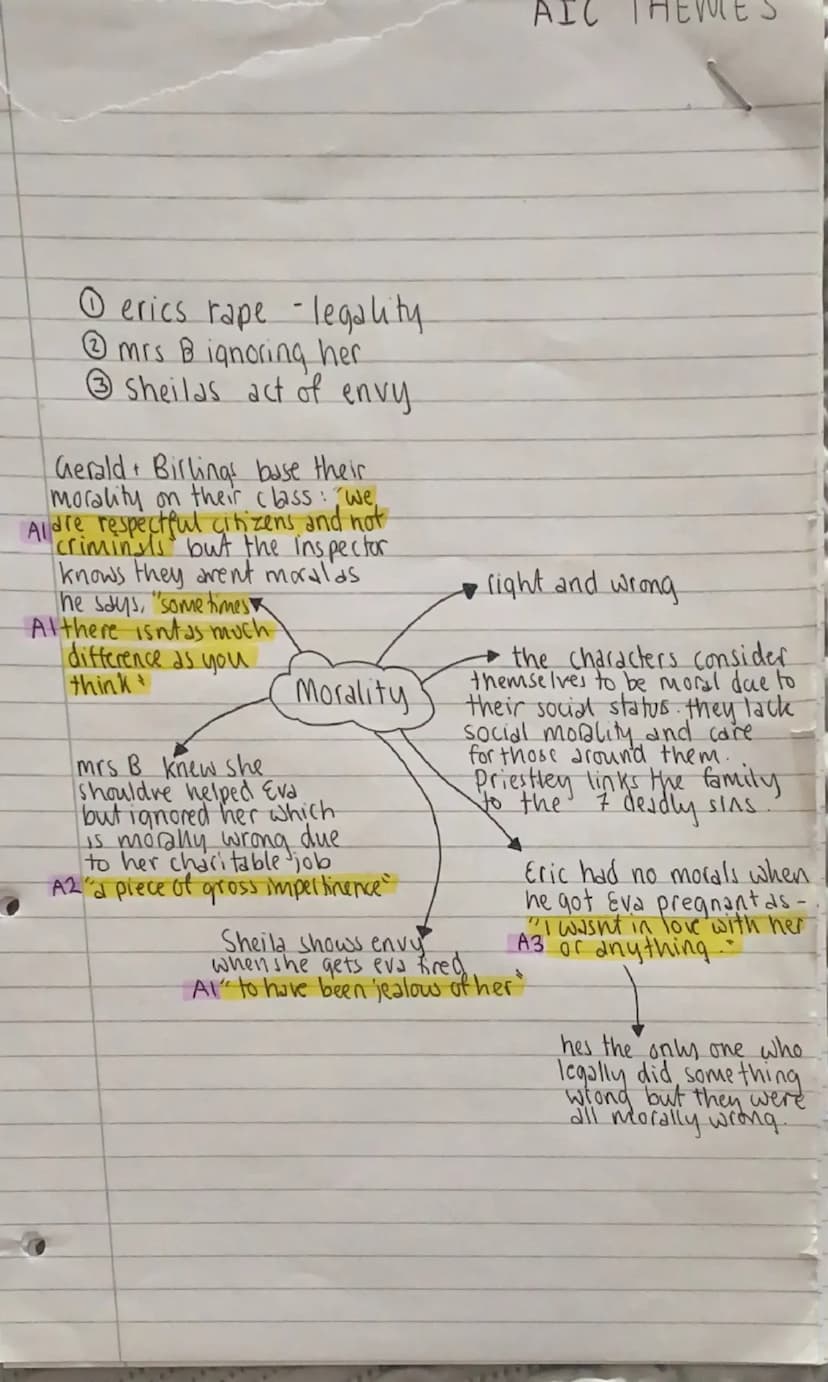 AIC THEMES
① erics rape - legality
② mrs B ignoring her
③ sheilas act of envy
Gerald + Birlings base their
morality on their class: "we
A1 are respectful citizens and not
criminals" but the inspector
knows they arent moral as
he says, "sometimes
A1 there isnt as much
difference as you
think"
Morality
right and wrong
the characters consider
themselves to be moral due to
their social status. they lack
social morality and care
for those around them.
Priestley links the family
to the 7 deadly sins.
mrs B knew she
shouldve helped Eva
but ignored her which
is morally wrong due
to her charitable job
A2 "a piece of gross impertinence"
Sheila shows envy
when she gets eva fired
A1 "to have been jealous of her"
Eric had no morals when
he got Eva pregnant as -
"I wasnt in love with her
A3 or anything."
hes the only one who
legally did something
wrong but they were
all morally wrong.